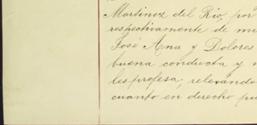 Martinez del Rio, por
respectivamente de mi
José Ana y Dolores
buena conducta y
les profesa, relevando
cuanto en derecho pu